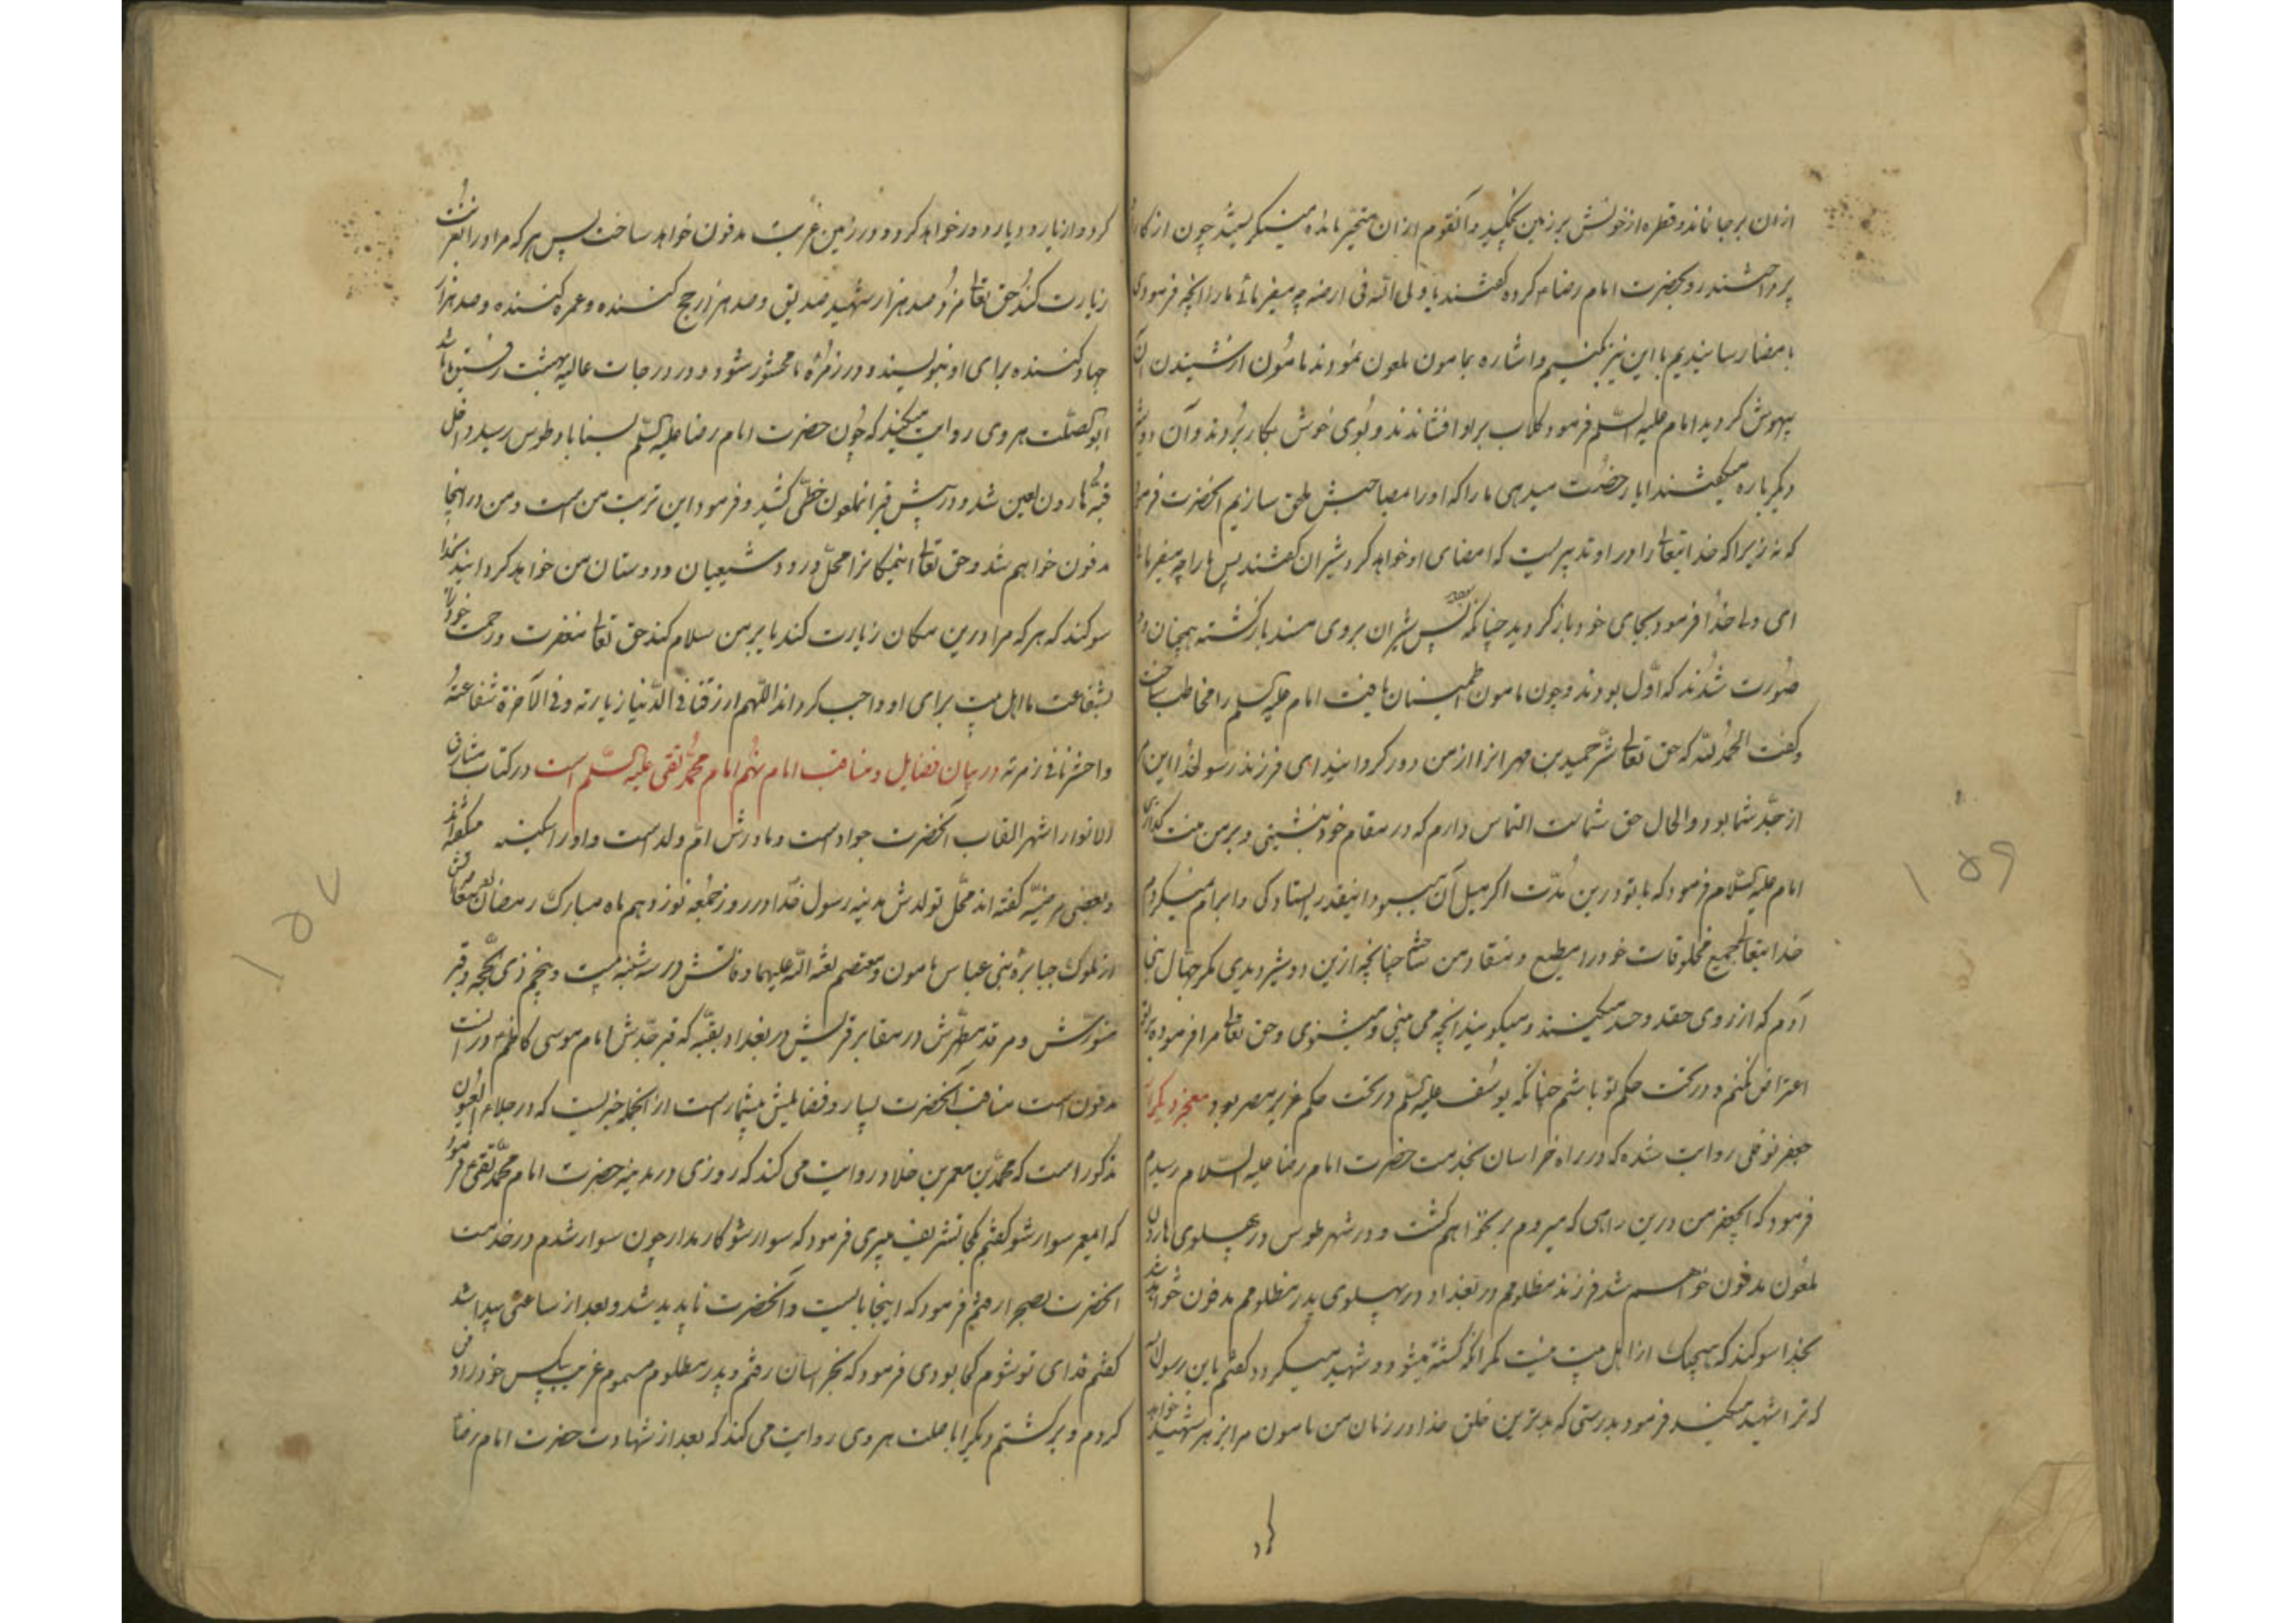 از ان برجا نماند و قطره از خونش بر زمین نچکید و آنقوم از ان متحیر مانده مینگریستند چون از کار
پرداختند رو بحضرت امام رضا کرده گفتند یا ولی الله فی ارضه چه میفرمائی ما را انچه فرمودی
بامضا رسانیدیم با این نیز بکنیم و اشاره بمامون ملعون نمودند مامون از شنیدن آن
بیهوش کردید امام علیه السلم فرمود کلاب بر او افشاندند و بوی خوش بکار بردند و آن دو شیر
دیکر باره میکفتند ایا رخصت میدهی ما را که او را بصاحبش ملحق سازیم انحضرت فرمود
که نه زیرا که خدایتعالی را در او تدبیریست که امضای او خواهد کرد شیران کفتند پس ما را چه میفرمائی
ای ولی خدا فرمود بجای خود باز کردید چنانکه بودید پس شیران بروی مسند باز کشته همچنان دو
صورت شدند که اول بودند و چون مامون اطمینان یافت امام علیه السلم را مخاطب ساخت
و کفت الحمد لله که حق تعالی شر حمید بن مهرانرا از من دور کردانید ای فرزند رسولخدا این
از جد شما بود و الحال حق شماست التماس دارم که در مقام خود بنشینی و بر من منت کذاری
امام علیه السلام فرمود که با تو درین مدت اکر میل آن میبود اینقدر ایستادکی و ابرام نمیکردم
خدایتعالی جمیع مخلوقات خود را مطیع و منقاد من ساخته چنانچه ازین دو شیر دیدی مکر جهال بنی
آدم که از روی حقد و حسد میکنند و میکویند انچه می بینی و میشنوی و حق تعالی مرا فرموده بر تو
اعتراض نکنم و در تحت حکم تو باشم چنانکه یوسف علیه السلم در تحت حکم عزیز مصر بود معجزه دیکر از
جعفر نوفلی روایت شده که در راه خراسان بخدمت حضرت امام رضا علیه السلام رسیدم
فرمود که ایجعفر من درین راهی که میروم بر نخواهم کشت و در شهر طوس در پهلوی هارون
ملعون مدفون خواهم شد فرزند مظلومم در بغداد در پهلوی پدر مظلومم مدفون خواهد شد
بخدا سوکند که هیچیک از اهل بیت نیست مکر انکه کشته میشود و شهید میکردد کفتم یا ابن رسول الله
که ترا شهید میکند فرمود بدرستی که بدترین خلق خدا در زمان من مامون مرا بزهر شهید خواهد
کرد
کرد و از یار و دیار دور خواهد کرد و در زمین غربت مدفون خواهد ساخت پس هر که مرا در ان غربت
زیارت کند حق تعالی مزد صد هزار شهید و صدیق و صد هزار حج کننده و عمره کننده و صد هزار
جهاد کننده برای او بنویسد و در زمره ما محشور شود و در درجات عالیه بهشت رفیق ما باشد
ابو الصلت هروی روایت میکند که چون حضرت امام رضا علیه السلم بسناباد طوس رسید داخل
قبه هارون لعین شد و در پیش قبر انملعون خطی کشید و فرمود این تربت من است و من در اینجا
مدفون خواهم شد و حق تعالی اینمکانرا محل ورود شیعیان و دوستان من خواهد کردانید بخدا
سوکند که هر که مرا درین مکان زیارت کند یا بر من سلام کند حق تعالی مغفرت و رحمت خود را
بشفاعت ما اهل بیت برای او واجب کرداند اللهم ارزقنا فی الدنیا زیارته و فی الآخرة شفاعته
و احشرنا فی زمرته در بیان فضایل و مناقب امام نهم امام محمد تقی علیه السلم است در کتاب مشارق
الانوار اشهر القاب آنحضرت جواد است و مادرش ام ولد است و او را سکینه میکفته اند
و بعضی مرضیه کفته اند محل تولدش مدینه رسول خدا در روز جمعه نوزدهم ماه مبارک رمضان
از ملوک جبابره بنی عباس مامون و معتصم لعنه الله علیهما وفاتش در سه شنبه بیست و پنجم ذی حجه و قبر
منورش و مرقد مطهرش در مقابر قریش در بغداد بقبه که قبر جدش امام موسی کاظم در انست
مدفون است مناقب آنحضرت بسیار و فضایلش بیشمار است از انجمله خبریست که در جلاء العیون
مذکور است که محمد بن معمر بن خلاد روایت می کند که روزی در مدینه حضرت امام محمد تقی فرمود
که ایمعمر سوار شو کفتم بکجا تشریف میبری فرمود که سوار شو کار مدار چون سوار شدم در خدمت
انحضرت بصحرا رفتم فرمود که اینجا بایست و آنحضرت ناپدید شد و بعد از ساعتی پیدا شد
کفتم فدای تو شوم کجا بودی فرمود که بخراسان رفتم و پدر مظلوم مسموم غریب بیکس خود را دفن
کردم و برکشتم دیکر ابا صلت هروی روایت می کند که بعد از شهادت حضرت امام رضا
۱۵۶
۱۵۷